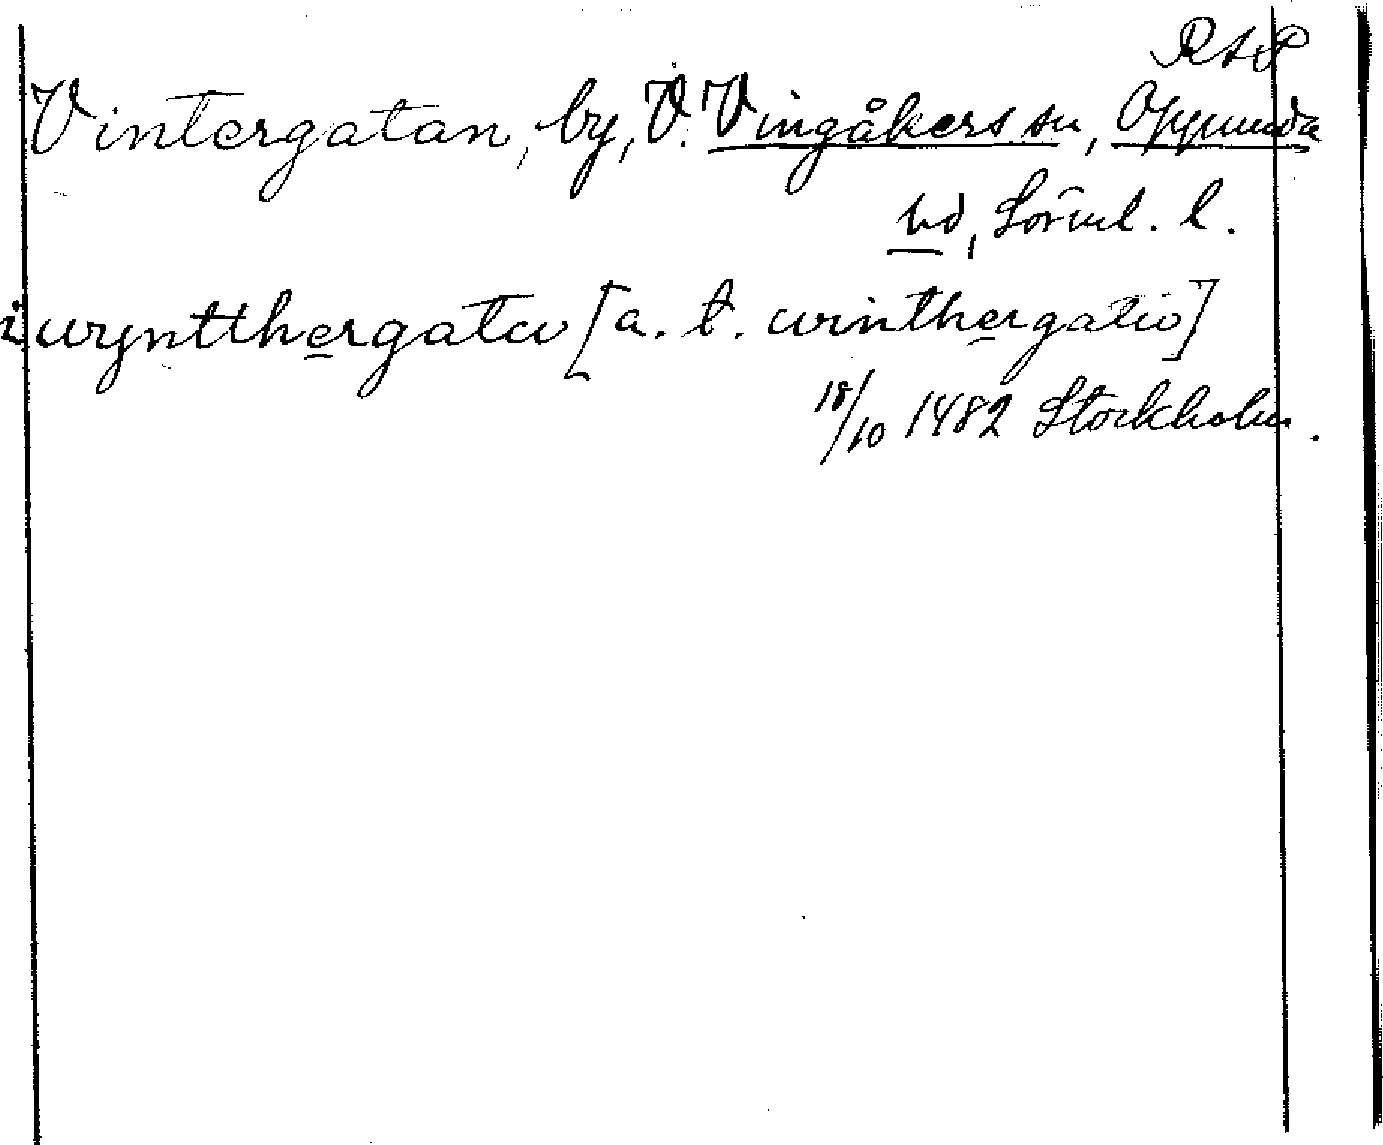 RAP
Vintergatan, by, V. Vingåkers sn, Oppunda
hd, Söderml. l.
i wyntthergatu [a. t. winthergatu]
18/10 1482 Stockholm.